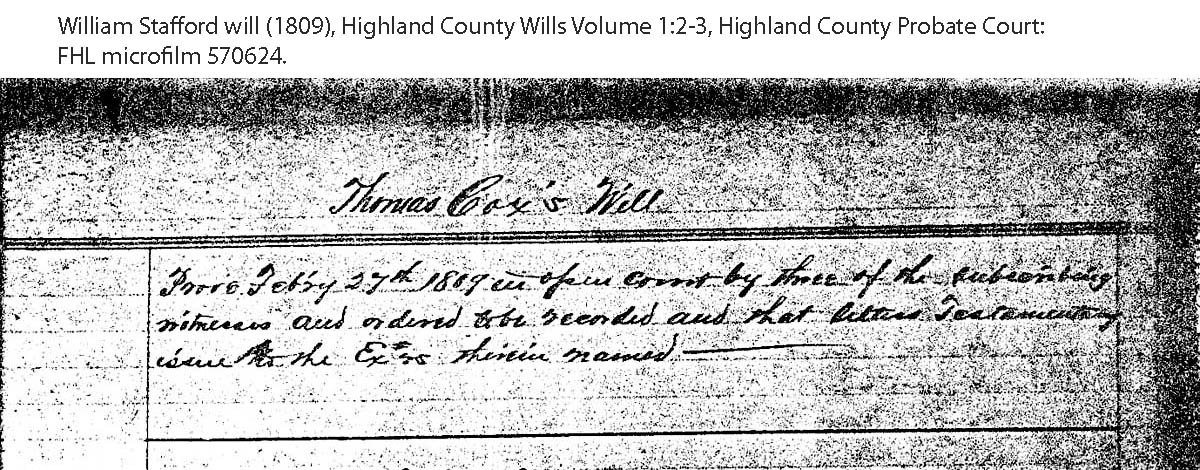 William Stafford will (1809), Highland County Wills Volume 1:2-3, Highland County Probate Court:
FHL microfilm 570624.
Thomas Cox's Will
Prove Feb'ry 27th 1809 in open court by three of the subscribing
witnesses and ordered to be recorded and that letters Testamentary
issue to the Ex'rs therein named